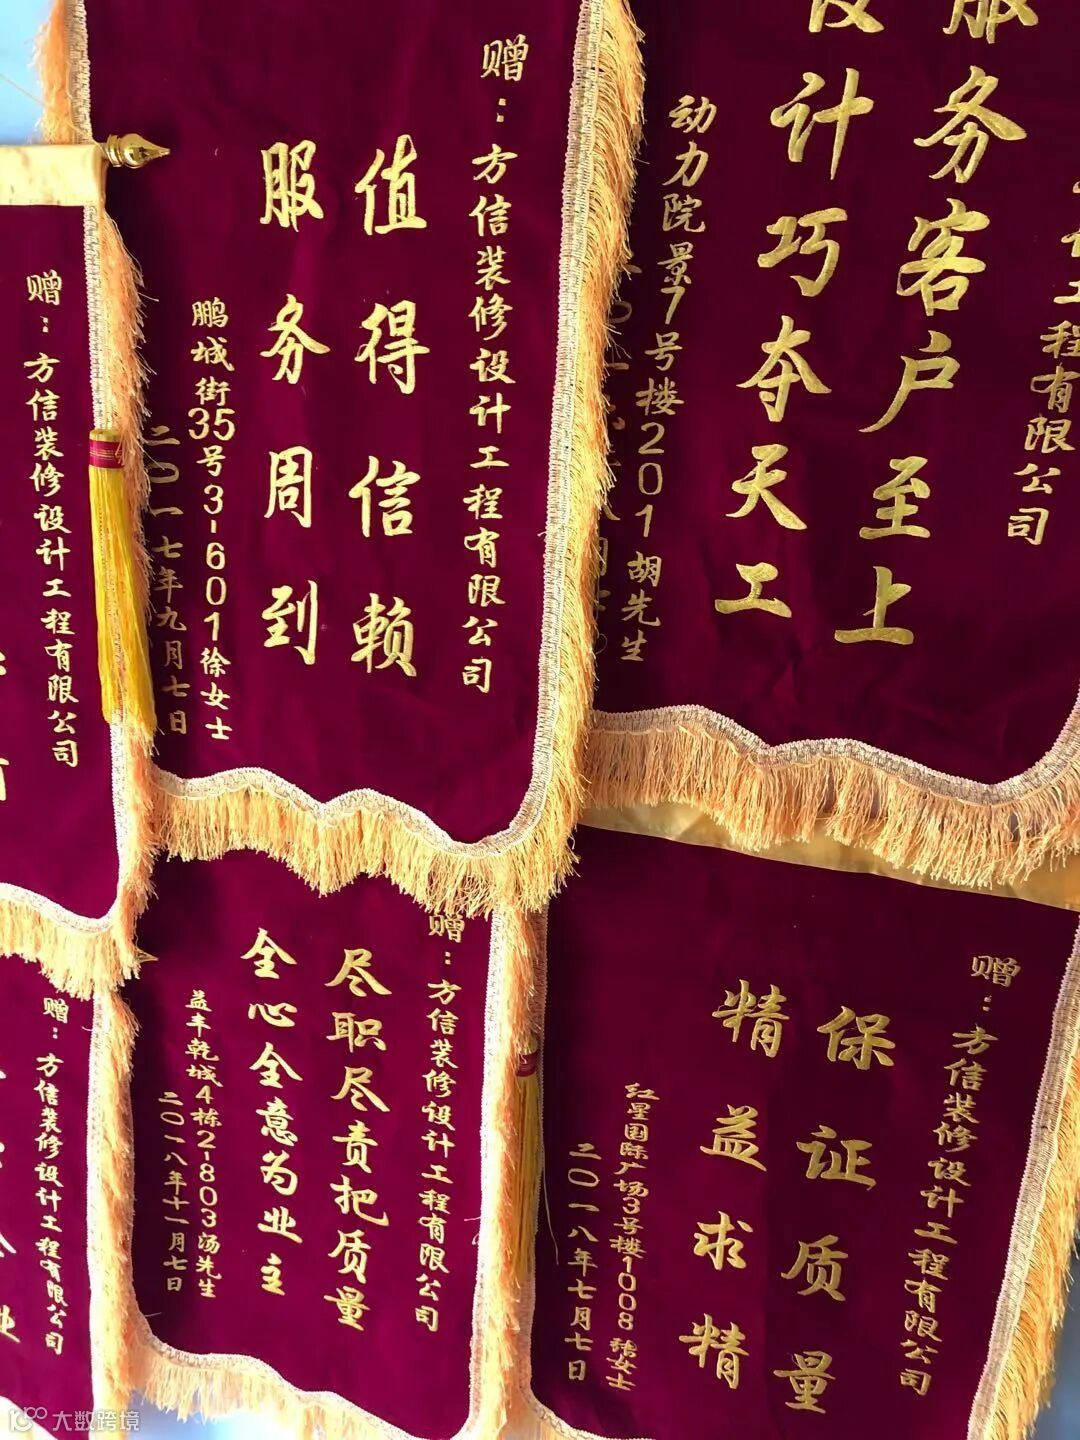 赠：方信装修设计工程有限公司
值得信赖
服务周到
鹏城街35号3-601徐女士
二〇一七年九月七日
工程有限公司
服务客户至上
设计巧夺天工
动力院景7号楼201胡先生
赠：方信装修设计工程有限公司
赠：方信装修设计工程有限公司
尽职尽责把质量
全心全意为业主
益丰乾城4栋2-803汤先生
二〇一八年十一月七日
赠：方信装修设计工程有限公司
保证质量
精益求精
红星国际广场3号楼1008 女士
二〇一八年七月七日
赠：方信装修设计工程有限公司
业
大数跨境